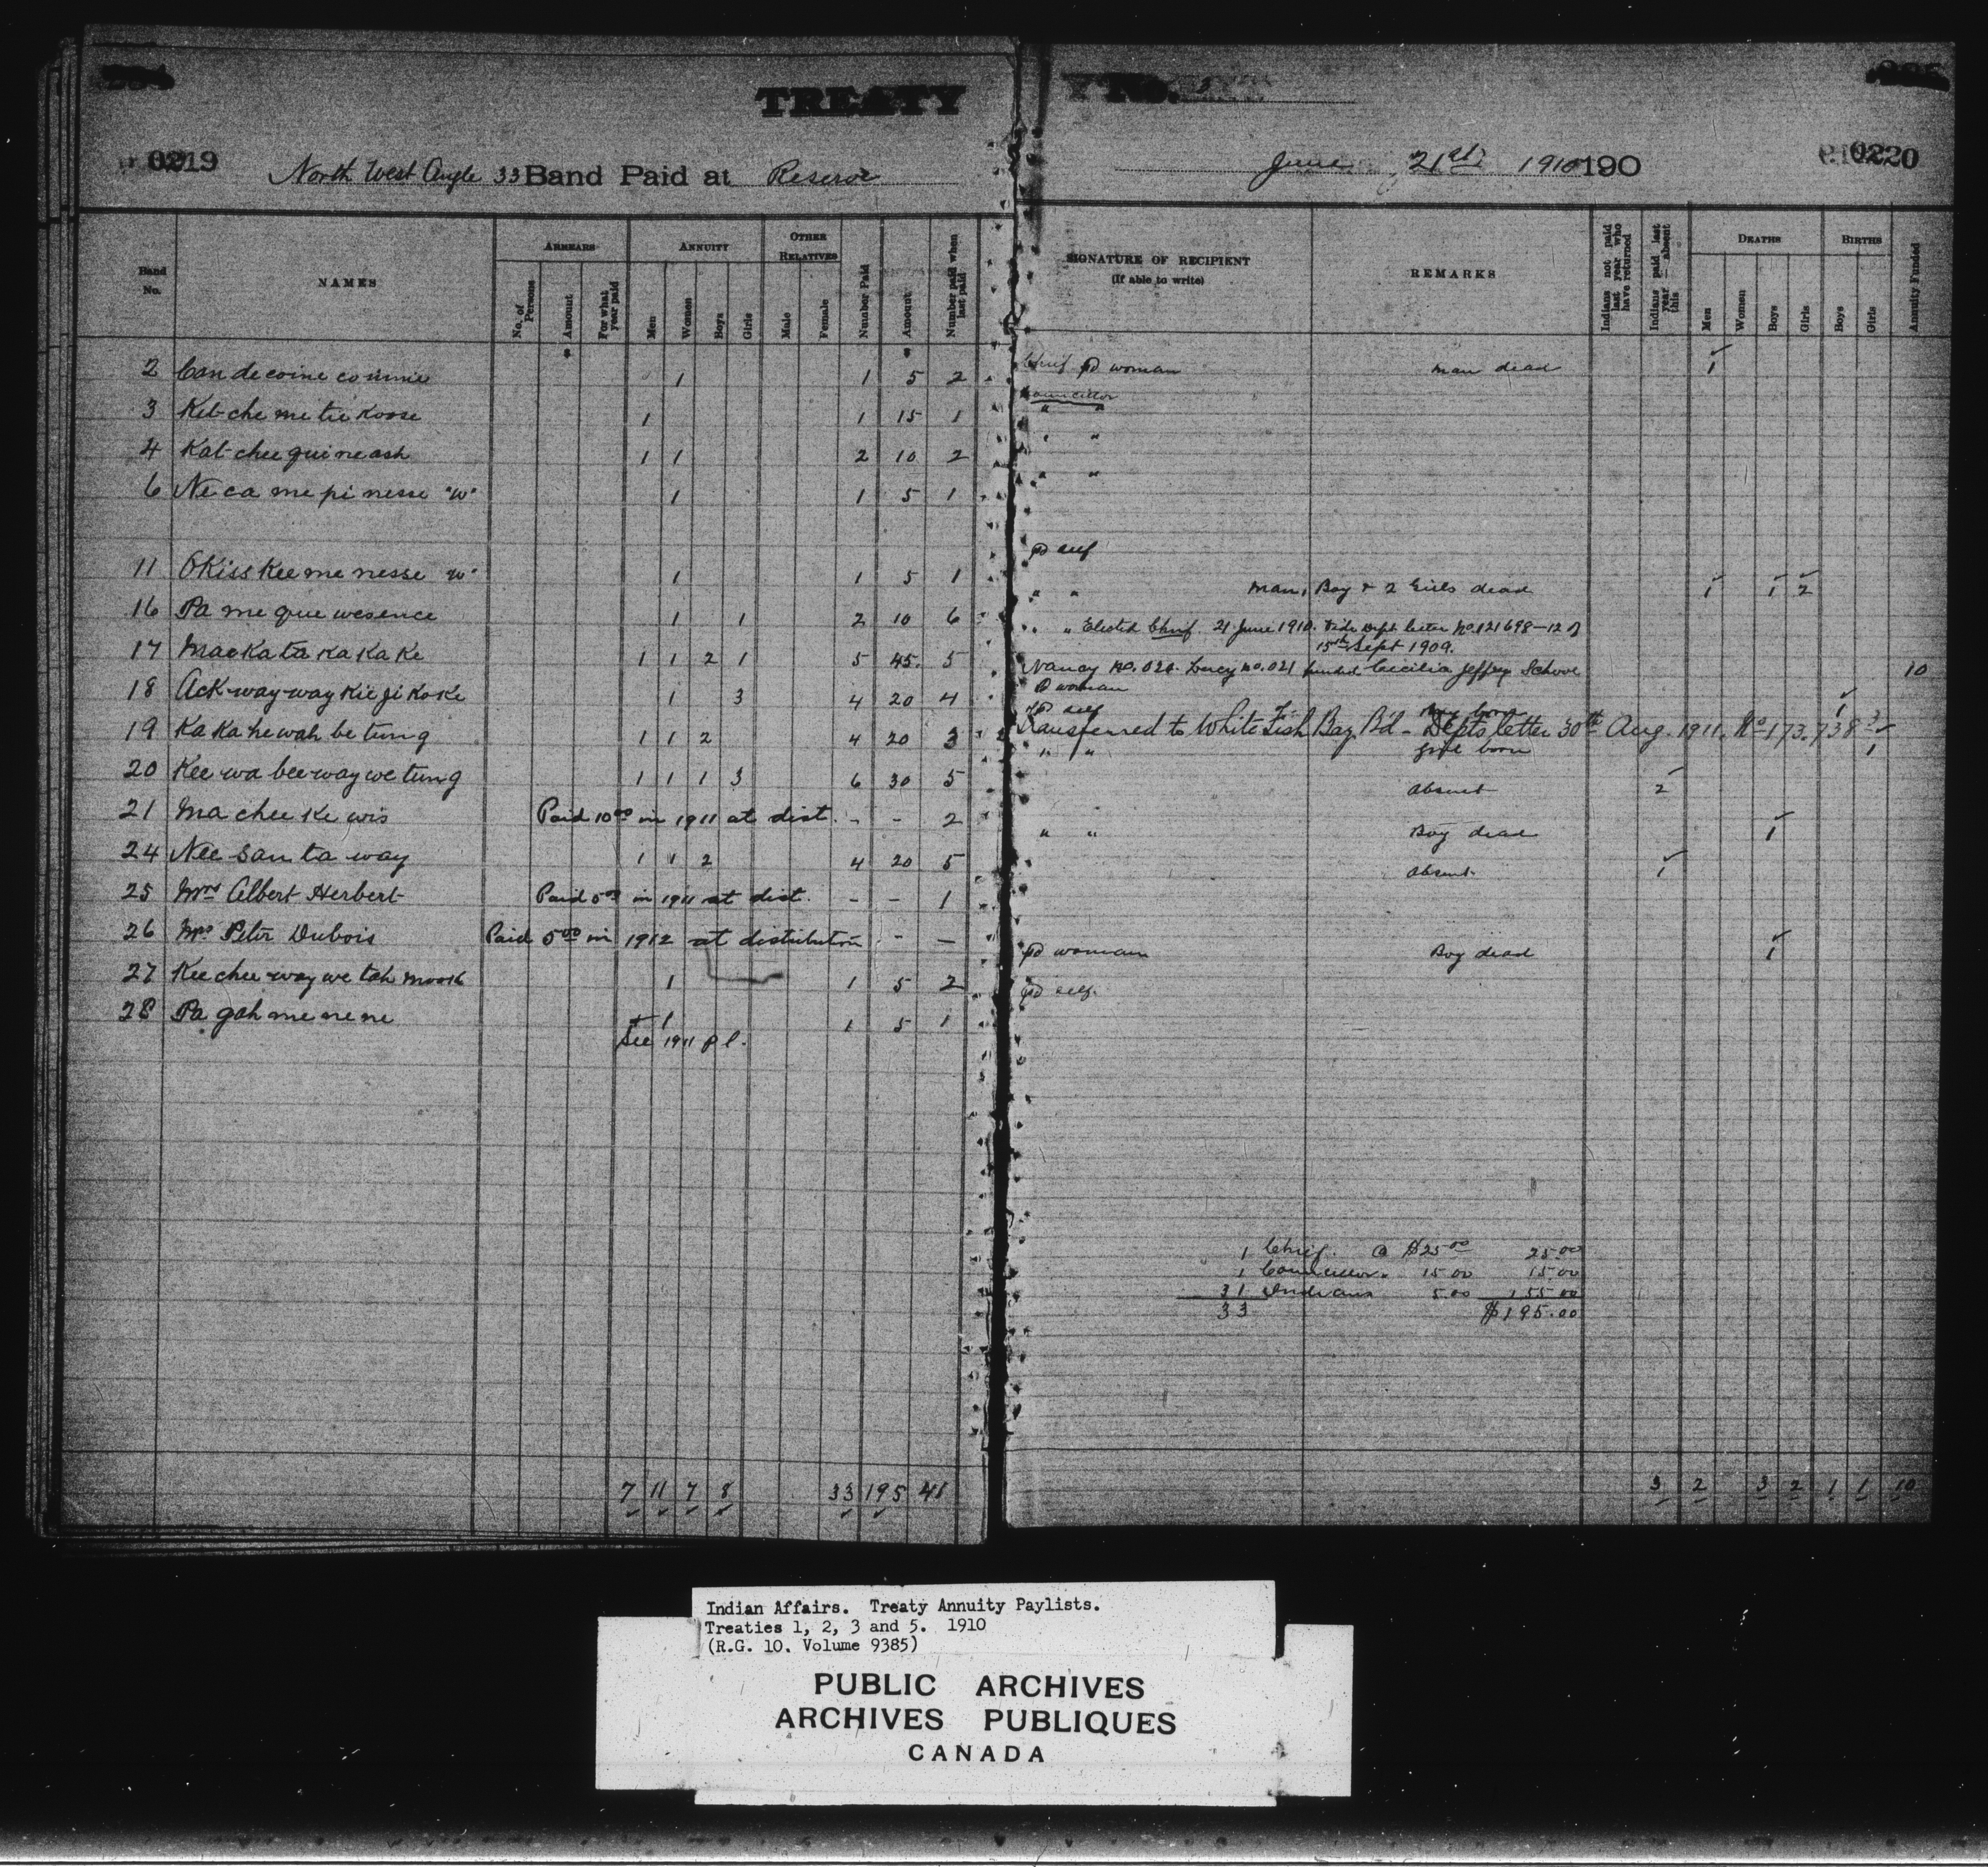 TREATY No.
0219
North West Angle 33 Band Paid at Reserve
June 21st 1910 190
0220
Band No. NAMES ARREARS ANNUITY OTHER RELATIVES Number Paid Amount Number paid when last paid
No. of Persons Amount For what year paid Men Women Boys Girls Male Female
SIGNATURE OF RECIPIENT (If able to write) REMARKS Indians not paid last year who have returned Indians paid last year — absent this DEATHS BIRTHS Annuity Funded
Men Women Boys Girls Boys Girls
2 1 1 5 2
3 Ket che me tie koose 1 1 15 1
4 Kat chee quineash 1 1 2 10 2
6 Ne ca me pi nesse "W" 1 1 5 1
11 OKiss Kee me nesse "W" 1 1 5 1
16 Pa me que wesence 1 1 2 10 6
17 Mac Ka ta Ka Ka Ke 1 1 2 1 5 45. 5
18 Ack way way Kie ji Ko Ke 1 3 4 20 4
19 Ka Ka ke wah be tung 1 1 2 4 20 3
20 Kee wa bee way we tung 1 1 1 3 6 30 5
21 Ma chee Ke wis Paid 10 00 in 1911 at dist. - - 2
24 Nee san ta way 1 1 2 4 20 5
25 Mrs Albert Herbert Paid 5 00 in 1911 at dist. - - 1
26 Mrs Peter Dubois Paid 5 00 in 1912 at distribution - -
27 Kee chee way we tah moosh 1 1 5 2
28 Pa gah me ne ne 1 1 5 1
See 1911 p l.
7 11 7 8 33 195 41
Chief Pd woman man dead 1
Councillor
" "
" "
" "
Pd self
" " Man, Boy & 2 Girls dead 1 1 2
" " Elected Chief. 21 June 1910. Vide Dept. letter No. 121698-12 of
15th Sept 1909.
Nancy no. 020. Lucy no. 021 funded Cecilia Jeffrey School 10
Pd woman
Pd self Boy born 1
Transferred to White Fish Bay Bd - Depts letter 30th Aug. 1911. No 173.738
" " girl born 1
Absent 2
" " Boy dead 1
Absent 1
Pd woman Boy dead 1
Pd self.
1 Chief. @ $25 00 25 00
1 Councillor " 15 00 15.00
31 Indians 5.00 155 00
33 $195.00
3 2 3 2 1 1 10
Indian Affairs. Treaty Annuity Paylists.
Treaties 1, 2, 3 and 5. 1910
(R.G. 10. Volume 9385)
PUBLIC ARCHIVES
ARCHIVES PUBLIQUES
CANADA